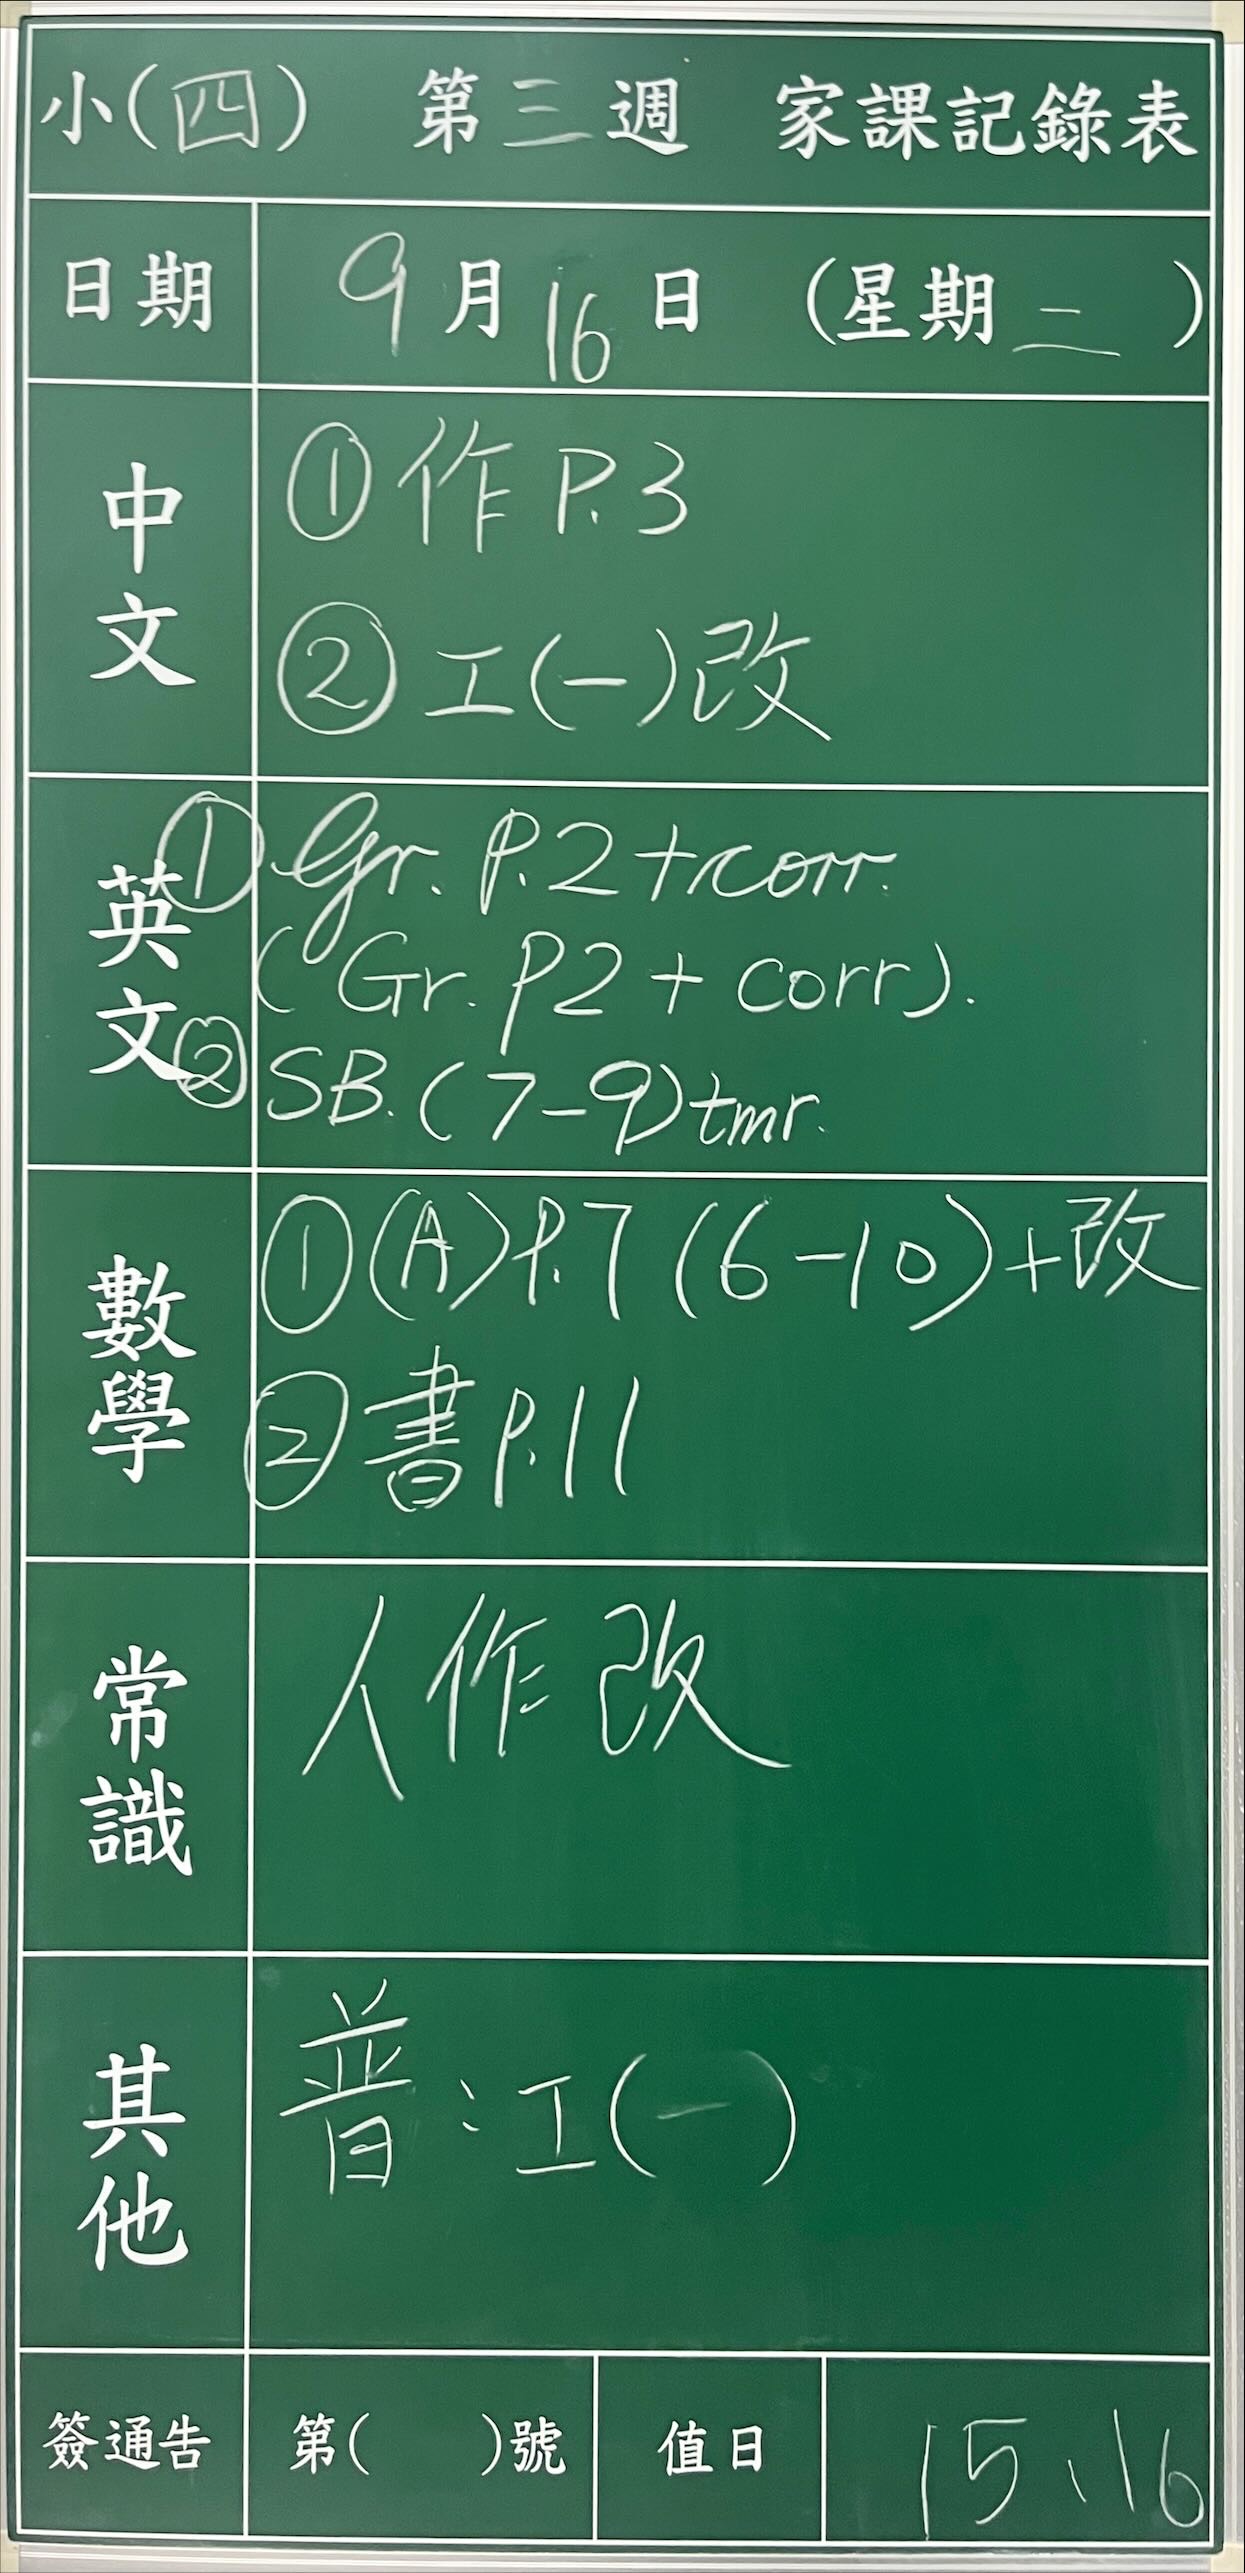 小(四) 第三週 家課記錄表
日期 9月16日 (星期二)
中文
①作 P.3
②工(一)改
英文
① Gr. P.2+corr.
(Gr. P2 + corr).
② SB. (7-9)tmr.
數學
①(A)P.7 (6-10)+改
②書P.11
常識
人作改
其他
普:工(一)
簽通告 第( )號 值日 15、16